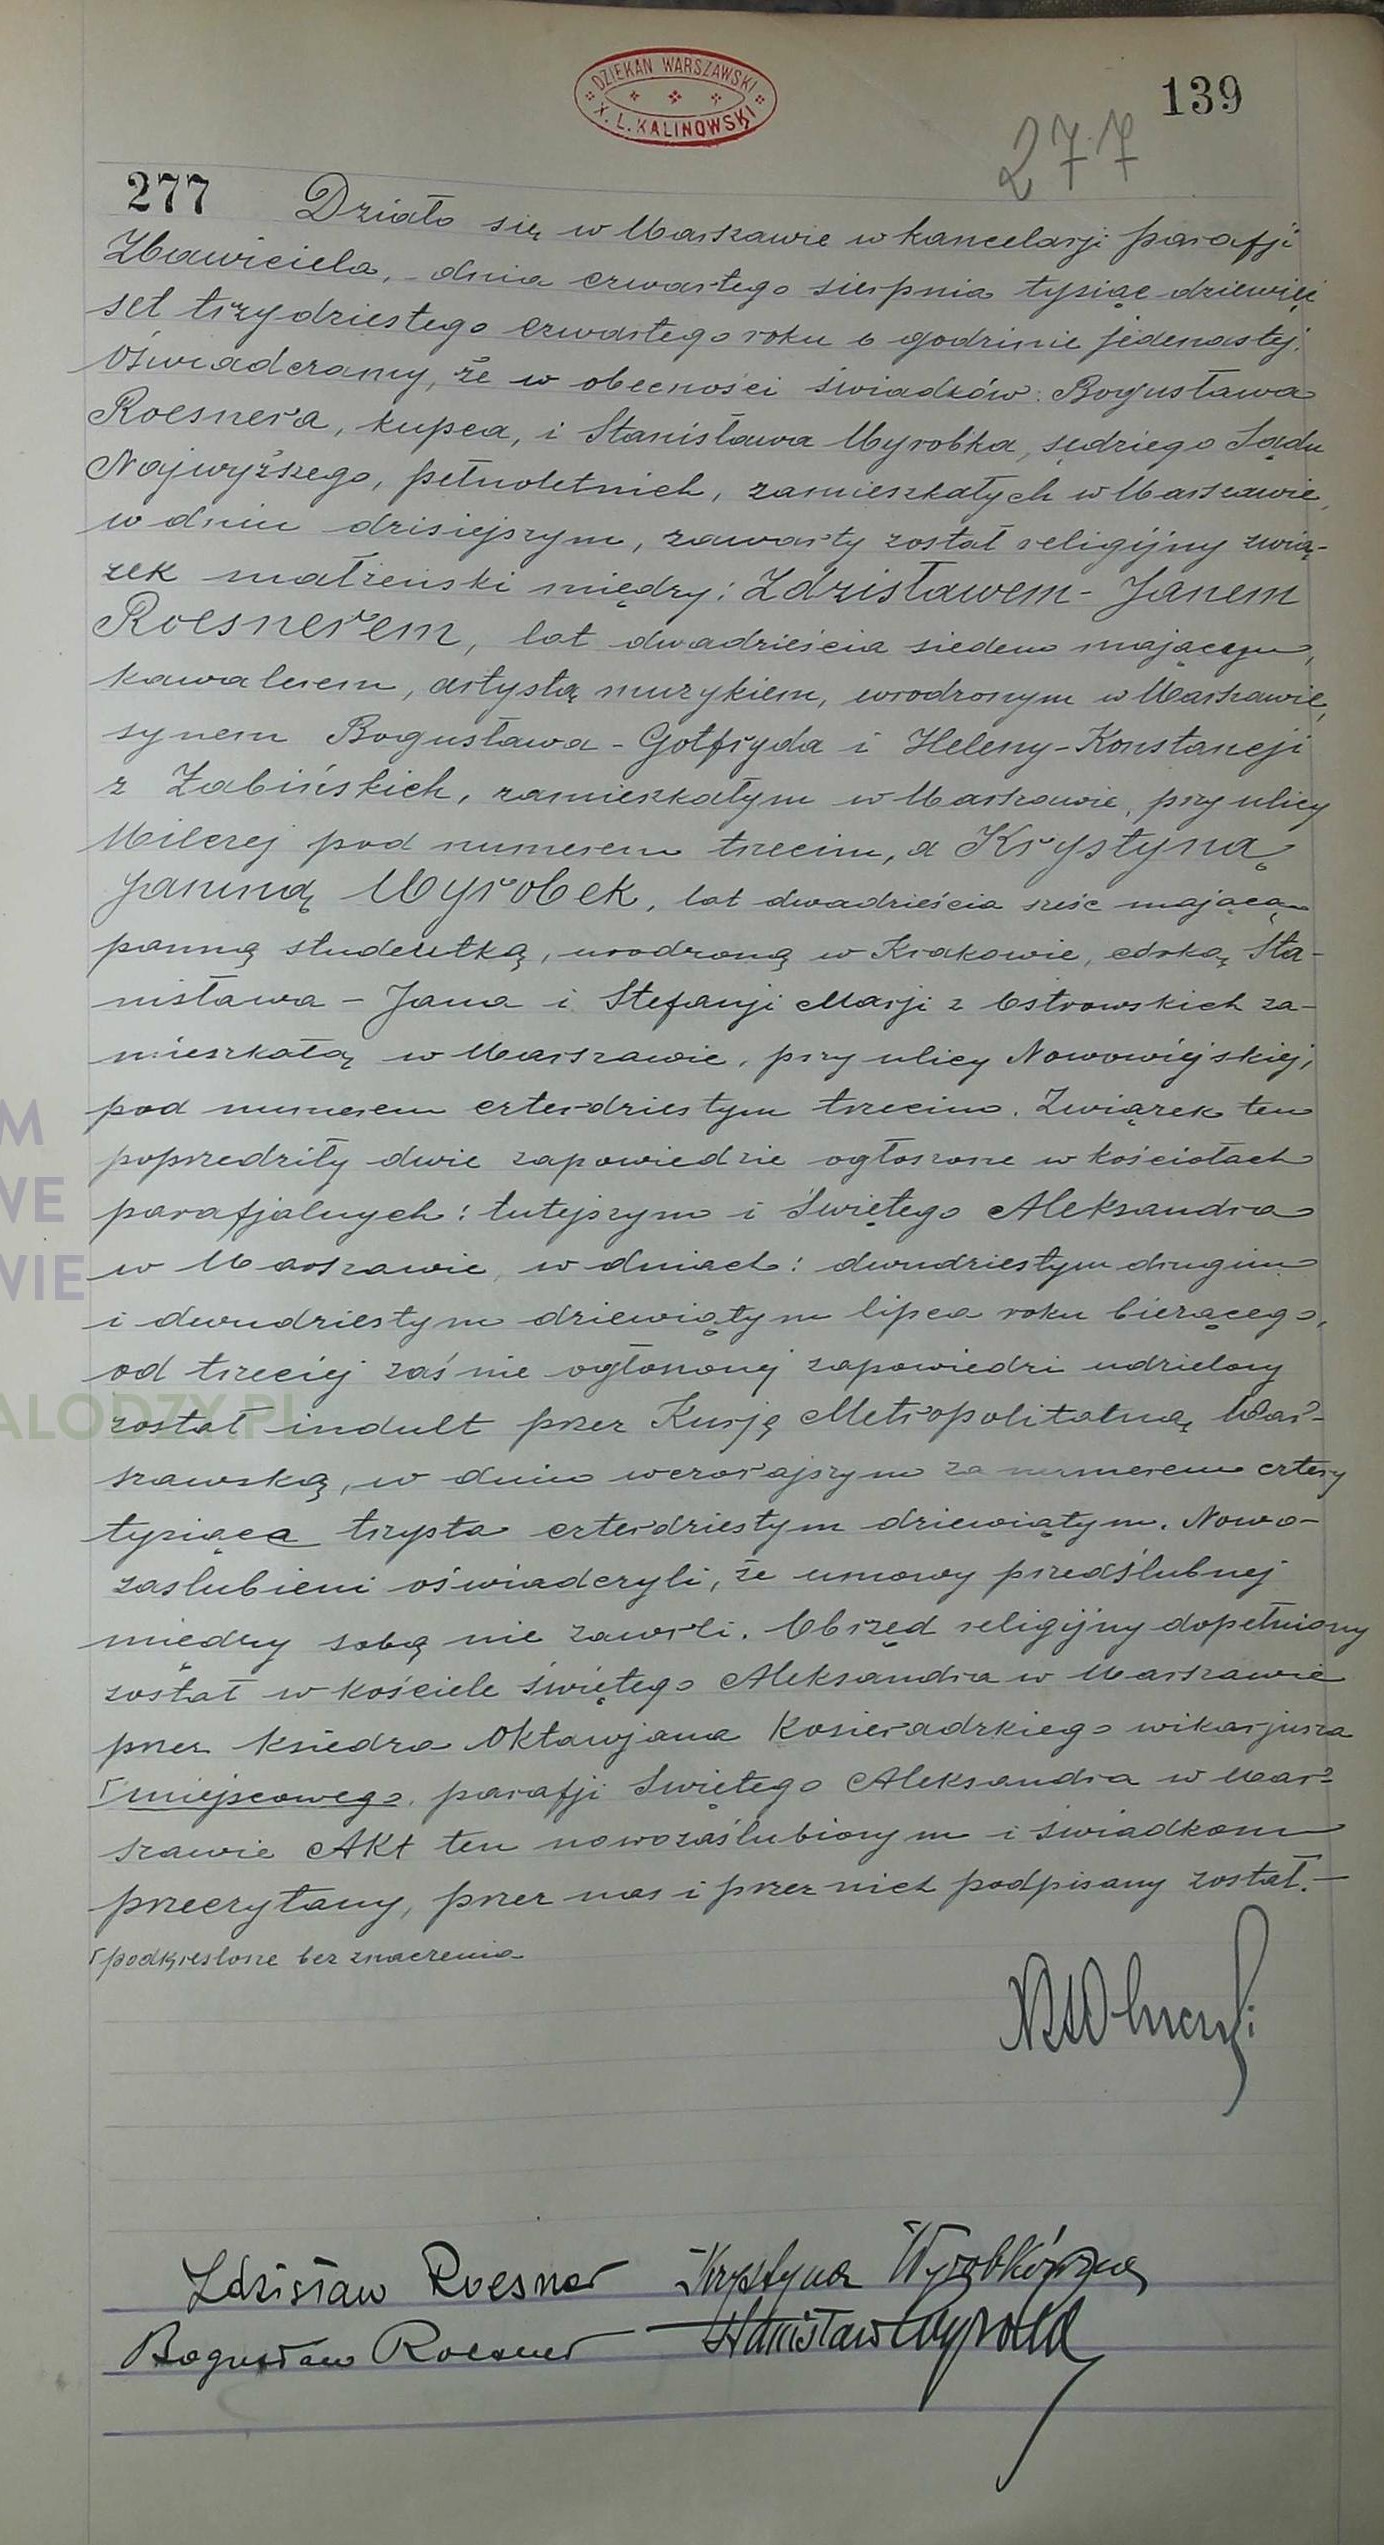 DZIEKAN WARSZAWSKI
X. L. KALINOWSKI
139
277
277 Działo się w Warszawie w kancelarji parafji
Zbawiciela, dnia czwartego sierpnia tysiąc dziewięć
set trzydziestego czwartego roku o godzinie jedenastej.
Oświadczamy, że w obecności świadków: Bogusława
Roesnera, kupca, i Stanisława Wyrobka, sędziego Sądu
Najwyższego, pełnoletnich, zamieszkałych w Warszawie,
w dniu dzisiejszym, zawarty został religijny zwią-
zek małżeński między: Zdzisławem - Janem
Roesnerem, lat dwadzieścia siedem mającym,
kawalerem, artystą muzykiem, urodzonym w Warszawie,
synem Bogusława - Gotfryda i Heleny - Konstancji
z Żabińskich, zamieszkałym w Warszawie, przy ulicy
Wilczej pod numerem trzecim, a Krystyną
Janiną Wyrobek, lat dwadzieścia sześć mającą
panną studentką, urodzoną w Krakowie, córką Sta-
nisława - Jana i Stefanji Marji z Ostrowskich za-
mieszkałą w Warszawie, przy ulicy Nowowiejskiej,
pod numerem czterdziestym trzecim. Związek ten
poprzedziły dwie zapowiedzie ogłoszone w kościołach
parafjalnych: tutejszym i Świętego Aleksandra
w Warszawie, w dniach: dwudziestym drugim
i dwudziestym dziewiątym lipca roku bieżącego,
od trzeciej zaś nie ogłoszonej zapowiedzi udzielony
został indult przez Kurję Metropolitalną War-
szawską, w dniu wczorajszym za numerem cztery
tysiąca trzysta czterdziestym dziewiątym. Nowo-
zaslubieni oświadczyli, że umowy przedślubnej
między sobą nie zawarli. Obrzęd religijny dopełniony
został w kościele świętego Aleksandra w Warszawie
przez księdza Oktawjana Kosieradzkiego wikarjusza
miejscowego, parafji Świętego Aleksandra w War-
szawie Akt ten nowozaślubionym i świadkom
przeczytany, przez nas i przez nich podpisany został.-
podkreślone bez znaczenia
Zdzisław Roesner Krystyna Wyrobkówna
Bogusław Roesner Stanisław Wyrobek
M
WE
WIE
ALODZY.PL